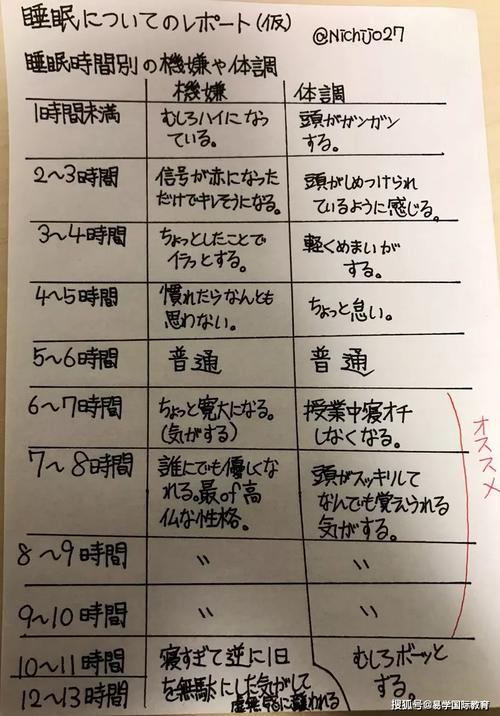 睡眠についてのレポート(仮)
@Nichijo27
睡眠時間別の機嫌や体調
機嫌 体調
1時間未満 むしろハイになっ 頭がガンガン
ている。 する。
2〜3時間 信号が赤になった 頭がしめつけられ
だけでキレそうになる。 ているように感じる。
3〜4時間 ちょっとしたことで 軽くめまいが
イラっとする。 する。
4〜5時間 慣れたらなんとも ちょっと怠い。
思わない。
5〜6時間 普通 普通
6〜7時間 ちょっと寛大になる。 授業中寝オチ
(気がする) しなくなる。
オススメ
7〜8時間 誰にでも優しくな 頭がスッキリして
れる。最of高 なんでも覚えられる
仏な性格。 気がする。
8〜9時間 〃 〃
9〜10時間 〃 〃
10〜11時間 寝すぎて逆に1日 むしろボーッと
12〜13時間 を無駄にした気がして する。
虚無感に襲われる
搜狐号@易学国际教育